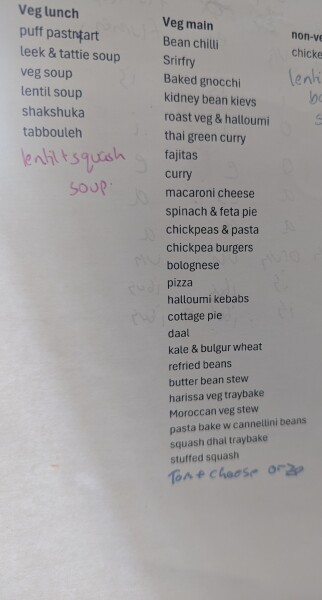 Veg lunch
puff pastry tart
leek & tattie soup
veg soup
lentil soup
shakshuka
tabbouleh
lentil + squash
soup.
Veg main
Bean chilli
Srirfry
Baked gnocchi
kidney bean kievs
roast veg & halloumi
thai green curry
fajitas
curry
macaroni cheese
spinach & feta pie
chickpeas & pasta
chickpea burgers
bolognese
pizza
halloumi kebabs
cottage pie
daal
kale & bulgur wheat
refried beans
butter bean stew
harissa veg traybake
Moroccan veg stew
pasta bake w cannellini beans
squash dhal traybake
stuffed squash
Tom + cheese orzo
non-ve
chicke
lentil